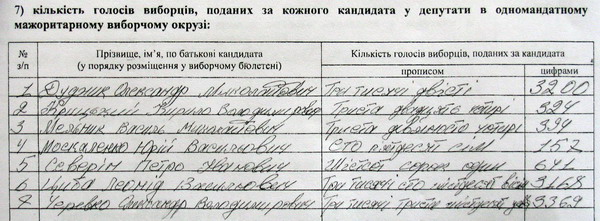 7) кількість голосів виборців, поданих за кожного кандидата у депутати в одномандатному
мажоритарному виборчому окрузі:
№ з/п Прізвище, ім'я, по батькові кандидата (у порядку розміщення у виборчому бюлетені) Кількість голосів виборців, поданих за кандидата
прописом цифрами
1 Дудник Олександр Миколайович Три тисячі двісті 3200
2 Кирило Володимирович Триста чотири
3 Мельник Василь Михайлович Триста дев'яносто чотири 394
4 Москаленко Юрій Васильович Сто п'ятдесят сім 157
5 Северін Петро Іванович Шістсот сорок один 641
6 Циба Леонід Васильович Три тисячі сто шістдесят вісім 3168
7 Черевко Олександр Володимирович Три тисячі триста шістдесят 3369